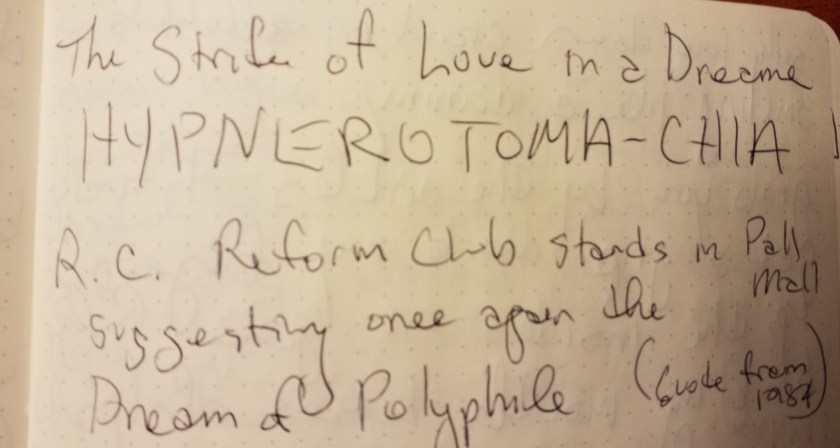 The Strife of Love in a Dreame
HYPNEROTOMA-CHIA
R.C. Reform Club stands in Pall Mall
suggesting once again the
Dream of Polyphile (Quote from 1984)